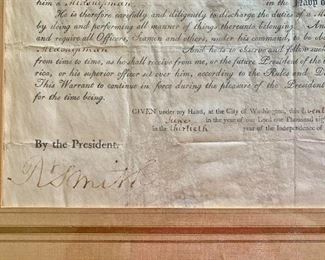 him a Midshipman in the Navy of
He is therefore carefully and diligently to discharge the duties of a
by doing and performing all manner of things thereunto belonging. An
and require all Officers, Seamen and others, under his command, to be ob
Midshipman And he is to observe and follow such
from time to time, as he shall receive from me, or the future President of the
rica, or his superior officer set over him, according to the Rules and D
This Warrant to continue in force during the pleasure of the President
for the time being.
GIVEN under my Hand, at the City of Washington, this
June in the year of our Lord One Thousand eigh
in the thirtieth year of the Independence of
By the President.
R. Smith